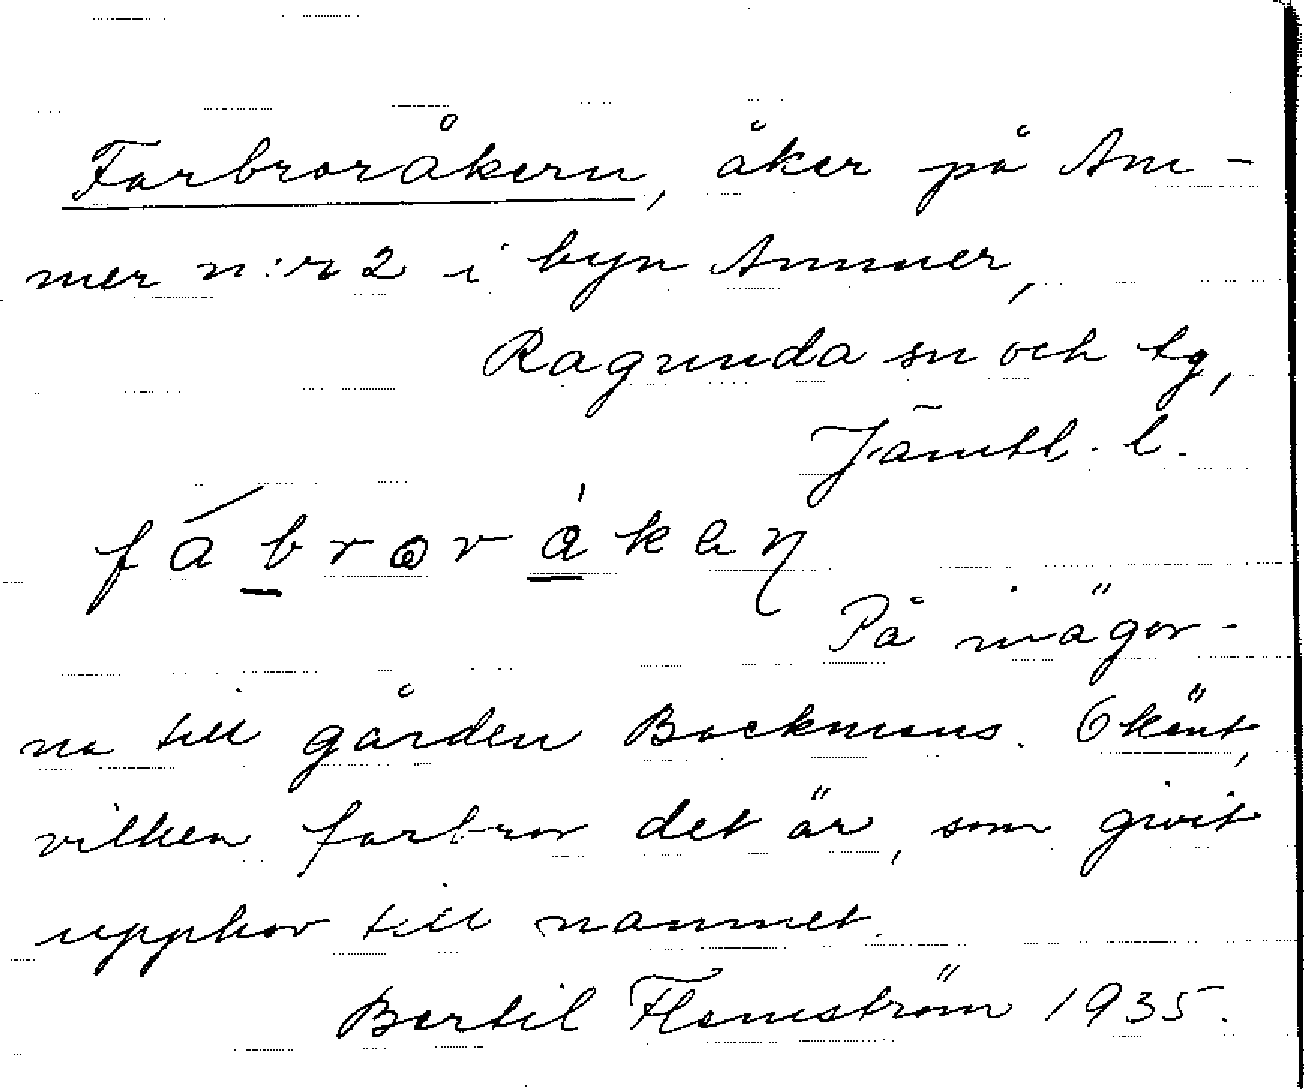 Farbroråkern, åker på Am-
mer n:r 2 i byn Ammer,
Ragunda sn och tg,
Jämtl. l.
På inägor-
na till gården Backmans. Okänt,
vilken farbror det är, som givit
upphov till namnet.
Bertil Flemström 1935.